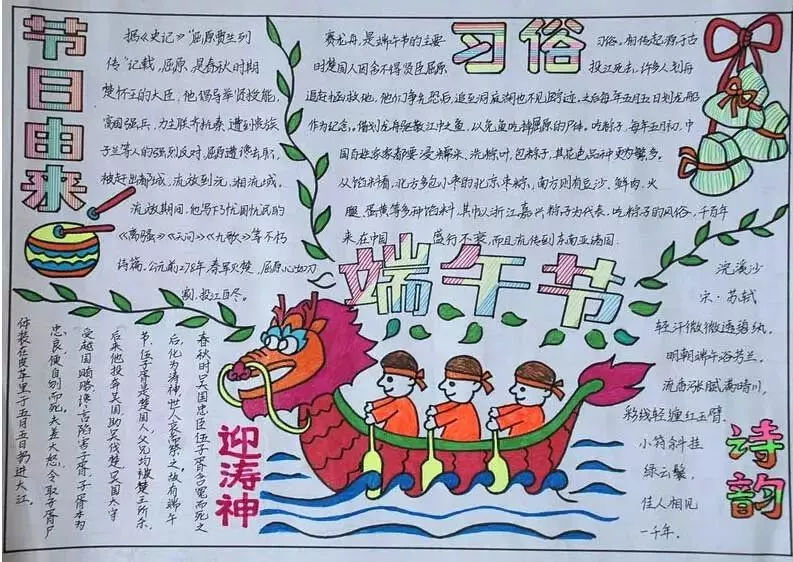 节日由来
据《史记》"屈原贾生列
传"记载,屈原,是春秋时期
楚怀王的大臣,他倡导举贤授能,
富国强兵,力主联齐抗秦,遭到贵族
子兰等人的强烈反对,屈原遭谗去职,
被赶出都城,流放到沅、湘流域。
流放期间,他写下忧国忧民的
《离骚》《天问》《九歌》等不朽
诗篇,公元前278年,秦军灭楚,屈原心如刀
割,投江自尽。
习俗
赛龙舟,是端午节的主要
习俗。相传起源于古
时楚国人因舍不得贤臣屈原
投江死去,许多人划舟
追赶拯救他,他们争先恐后,追至洞庭湖也不见踪迹,之后每年五月五日划龙船
作为纪念。借划龙舟驱散江中之鱼,以免鱼吃掉屈原的尸体。吃粽子,每年五月初,中
国百姓家家都要浸糯米、洗粽叶、包粽子,其花色品种更为繁多。
从馅料看,北方多包小枣的北京枣粽,南方则有豆沙、鲜肉、火
腿、蛋黄等多种馅料,其中以浙江嘉兴粽子为代表,吃粽子的风俗,千百年
来在中国 盛行不衰,而且流传到东南亚诸国.
端午节
迎涛神
春秋时吴国忠臣伍子胥含冤而死之
后,化为涛神,世人哀而祭之,故有端午
节,伍子胥是楚国人,父兄均被楚王所杀,
后来他投奔吴国助吴伐楚,吴国太宰
受越国贿赂,谗言陷害子胥,子胥本为
忠良,便自刎而死,夫差大怒,令取子胥尸
体装在皮革里于五月五日扔进大江。
诗韵
浣溪沙
宋·苏轼
轻汗微微透碧纨,
明朝端午浴芳兰。
流香涨腻满晴川,
彩线轻缠红玉臂.
小符斜挂
绿云鬟,
佳人相见
一千年。